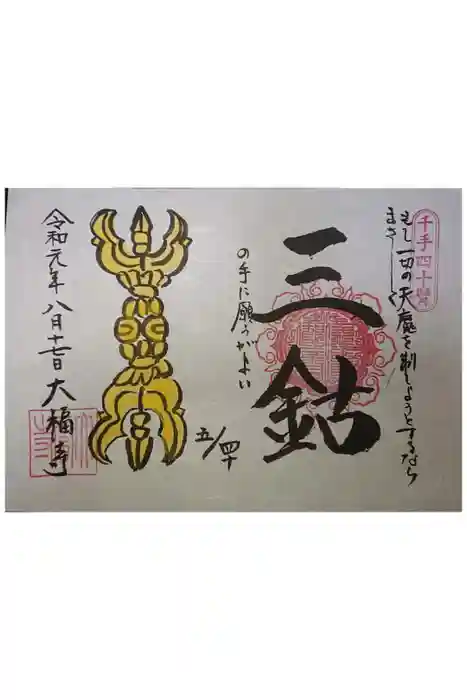 千手四十臂
もし一切の天魔を制しようとするなら
まさしく
三鈷
の手に願うがよい
五/四十
令和元年八月十七日 大福寺